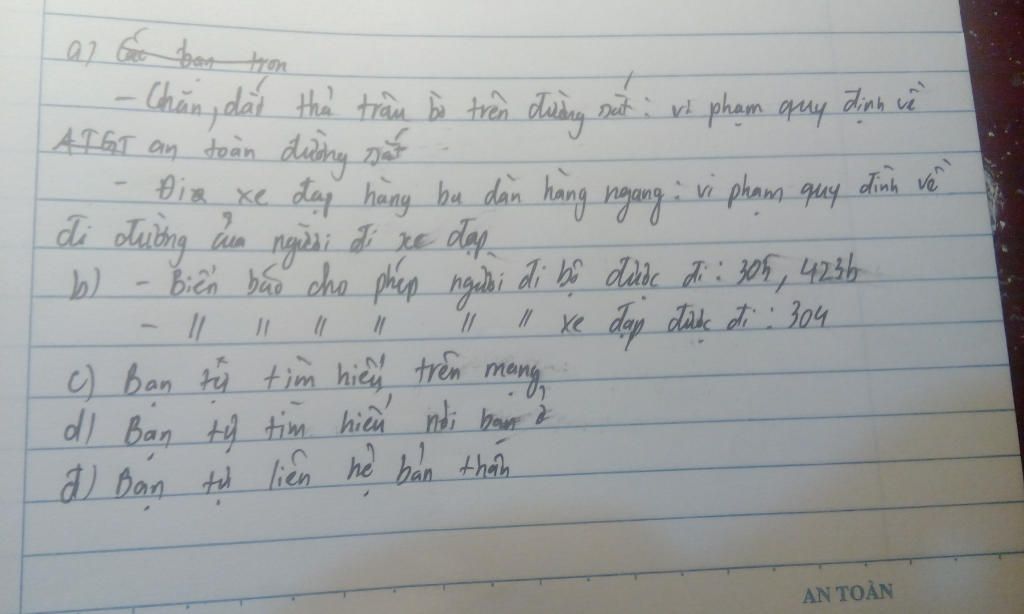 a) Các bạn tron
- Chăn, dắt thả trâu bò trên đường sắt : vi phạm quy định về
ATGT an toàn đường sắt
- Đi xe đạp hàng ba dàn hàng ngang : vi phạm quy đinh về
đi đường của người đi xe đạp
b) - Biển báo cho phép người đi bộ được đi : 305, 423b
- " " " " " " xe đạp được đi : 304
c) Bạn tự tìm hiểu trên mạng
d) Bạn tự tìm hiểu nơi bạn ở
đ) Bạn tự liên hệ bản thân
AN TOÀN